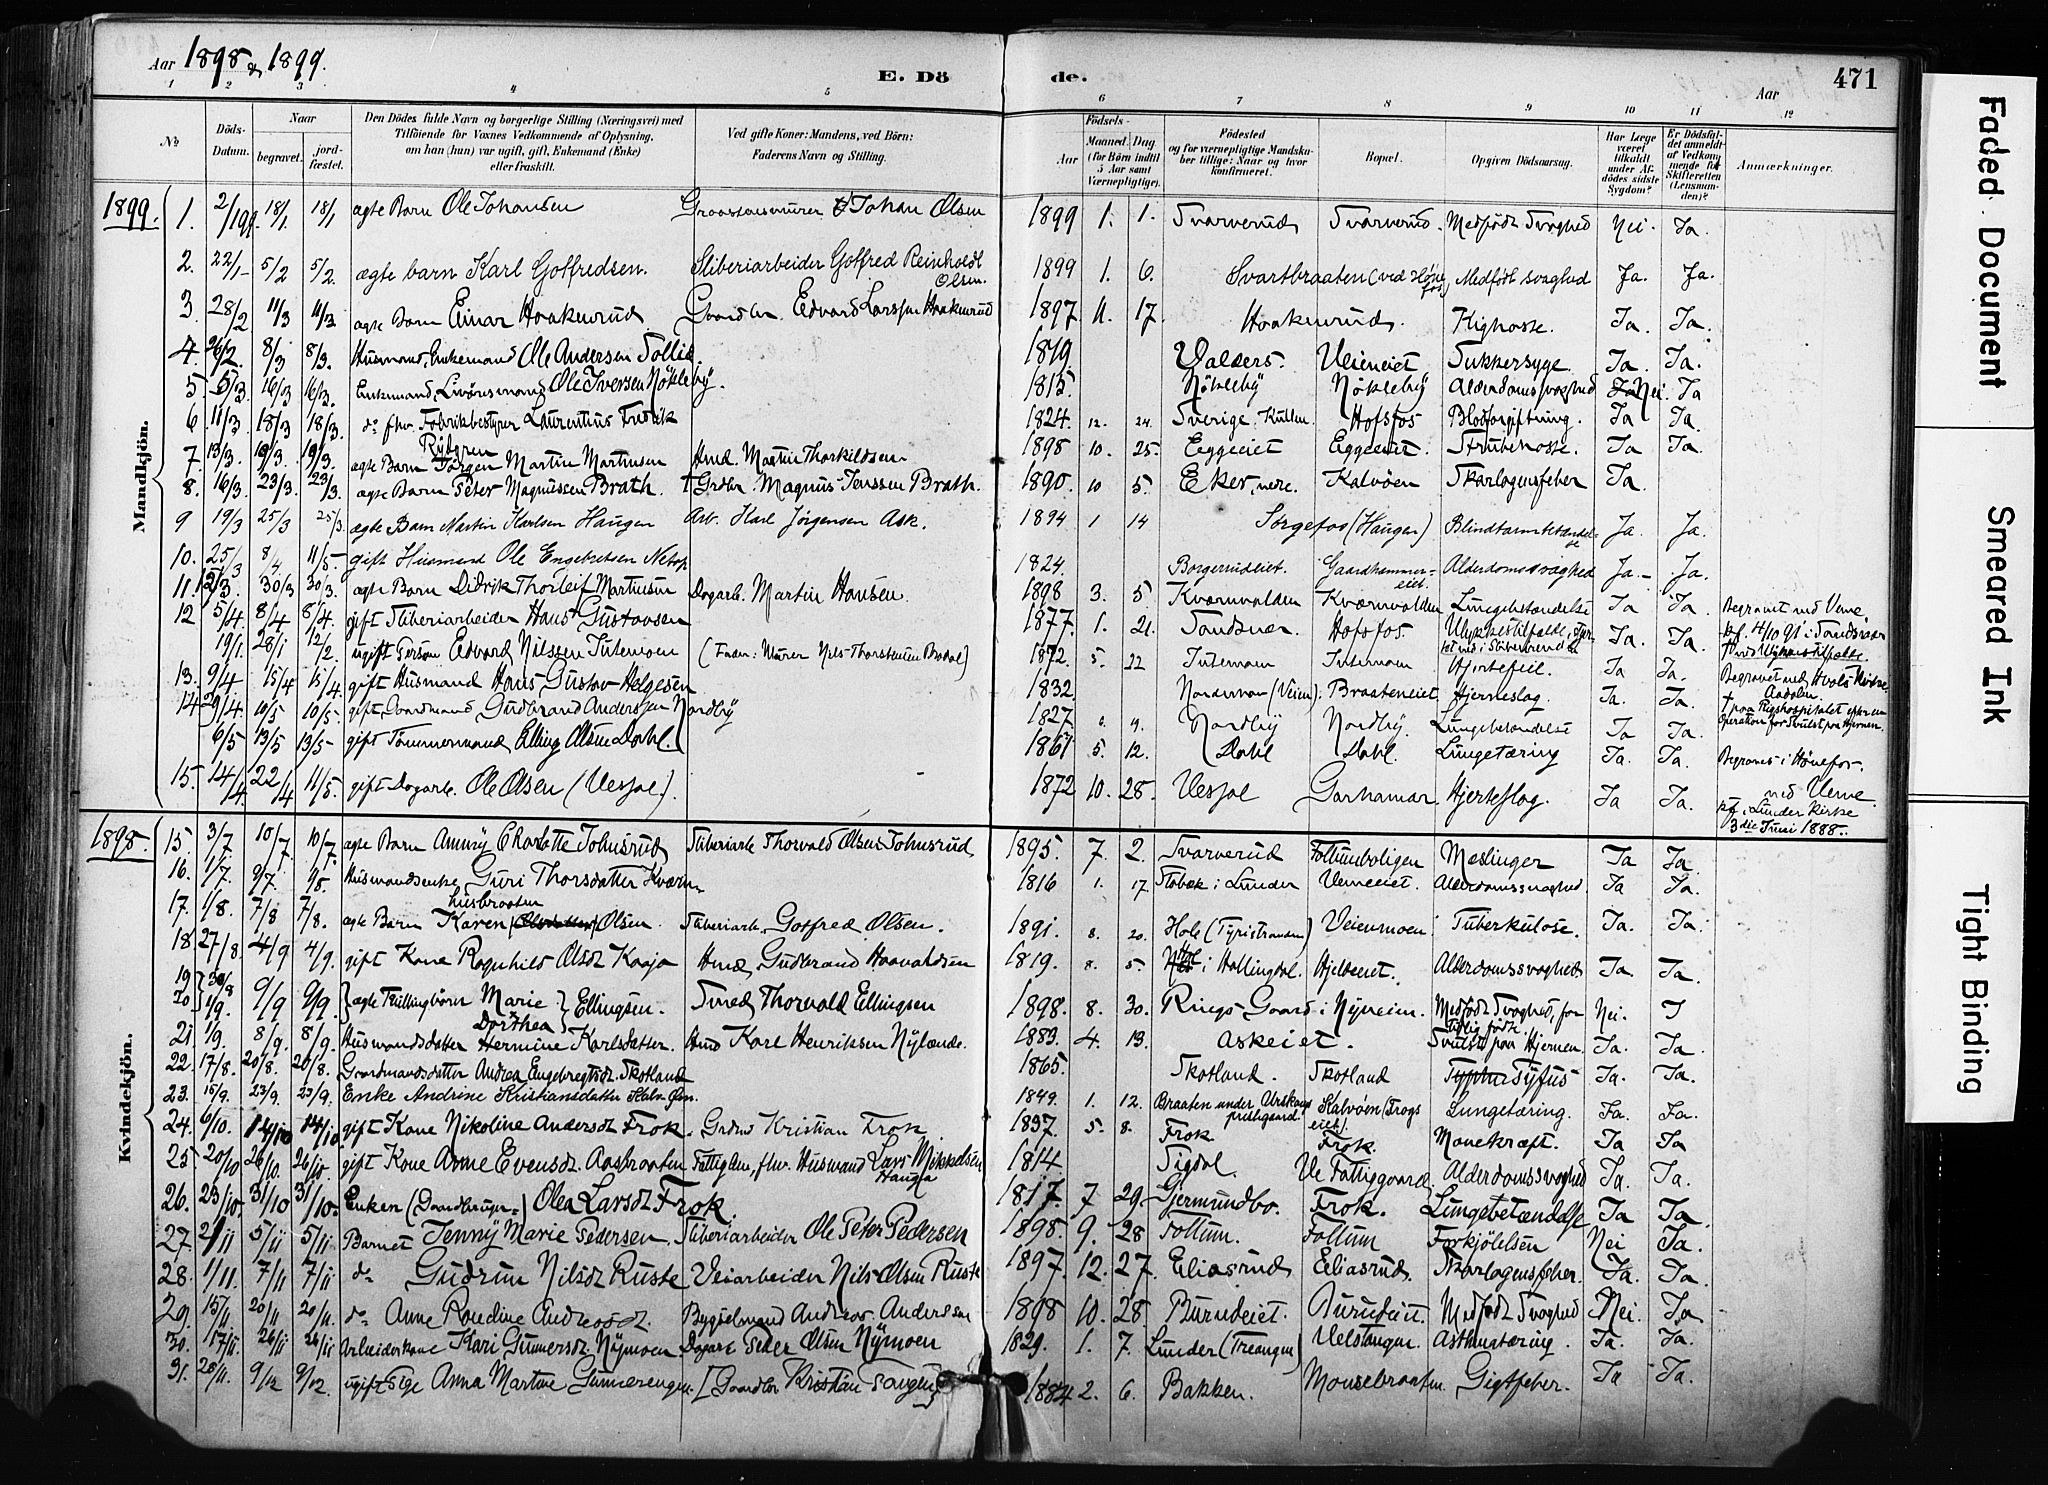 Aar 1898 & 1899.
E. Dö de.
Aar
471
1 2 3 4 5 6 7 8 9 10 11 12
No
Döds-Datum.
Naar
begravet.
jord-fæstet.
Den Dödes fulde Navn og borgerlige Stilling (Næringsvei) med
Tilföiende for Voxnes Vedkommende af Oplysning,
om han (hun) var ugift, gift, Enkemand (Enke)
eller fraskilt.
Ved gifte Koner: Mandens, ved Börn:
Faderens Navn og Stilling.
Födsels-
Aar
Maaned.
Dag
(for Börn indtil
5 Aar samt
Værnepligtige).
Födested
og for værnepligtige Mandska-
ber tillige: Naar og hvor
konfirmeret.
Bopæl.
Opgiven Dödsaarsag.
Har Læge
været
tilkaldt
under Af-
dödes sidste
Sygdom?
Er Dödsfal-
det anmeldt
af Vedkom-
mende for
Skifteretten
(Lensman-
den)?
Anmærkninger.
Mandkjön.
1899. 1. 2/1 99. 18/1. 18/1 ægte Barn Ole Johansen Graastensmurer Johan Olsen 1899 1. 1. Svarverud Svarverud. Medfödt Svaghed Nei. Ja.
2. 22/1 5/2 5/2. ægte barn Karl Gotfredsen. Sliberiarbeider Gotfred Reinholdt Olsen. 1899 1. 6. Svartbraaten (ved Hönefos) Medfödt svaghed Ja. Ja.
3 28/2 11/3 11/3 ægte Barn Einar Haakenrud Gaardbr. Edvard Larssen Haakenrud 1897 11. 17. Haakenrud. Kighoste. Ja. Ja.
4. 26/2. 8/3 8/3. Husmand, Enkemand Ole Andersen Sollid. 1819. Valders. Veieneiet Sukkersyge. Ja Ja.
5. 5/3 16/3 16/3. Enkemand, Livöresmand Ole Iversen Nökleby. 1815. Nökleby Nökleby Alderdomssvaghed Nei. Ja
6. 11/3 18/3 18/3. do fhv. Fabrikbestyrer Laurentius Fredrik Rydgren 1824. 12. 24. Sverige, Kullen Hofsfos Blodforgiftning. Ja Ja
7. 13/3. 19/3. 19/3. ægte Barn Jörgen Martin Martinsen Hmd. Martin Thorkildsen 1898 10. 25. Eggeeiet Eggeeiet. Strubehoste. Ja Ja.
8. 16/3. 23/3 23/3. ægte Barn Peter Magnussen Brath. † Grdbr. Magnus Jenssen Brath. 1890. 10 5. Eker, nere. Kalvöen Skarlagensfeber Ja.
9 19/3 25/3 25/3. ægte Barn Martin Karlsen Haugen Arb. Karl Jörgensen Ask. 1894 1 14 Sörgefos (Haugen) Blindtarmbetændelse Ja. Ja.
10. 25/3 8/4 11/5 gift Husmand Ole Engebretsen 1824. Borgerudeiet. Gaardhammereiet. Alderdomssvaghed Ja. Ja.
11. 30/3 30/3. ægte Barn Didrik Thorleif Martinsen Dagarb. Martin Hansen. 1898 3. 5. Kværnvolden Kværnvolden Lungebetændelse Ja Ja. Begravet ved Veme
12 5/4 8/4 8/4. gift Sliberiarbeider Hans Gustavsen 1877. 1. 21. Sandsvær. Hofsfos. Ulykkestilfælde, Ja. Ja. kf. 4/10 91 i Sandsvær
19/1. 28/1 12/2. ugift Person Edvard Nilssen Tutemoen (Fader: Murer Nils Thorstensen) 1872. 5. 22 Tutemoen Tutemoen Hjertefeil. Ja Ja.
13. 9/4 15/4 15/4. gift Husmand Hans Gustav Helgesen 1832. Norderhov (Veien). Braateneiet Hjerneslag. Ja. Ja. Begravet ved Hvals Kirke Aadalen.
14 29/4. 10/5 10/5. gift Gaardmand Gudbrand Anderssen Nordby 1827. 9. Nordby Nordby. Lungebetændelse Ja Ja. † paa Rigshospitalet efter en Operation for Svulst paa Hjernen.
6/5 13/5 13/5 gift Tömmermand Elling Olsen Dahl. 1861 5. 12. Dahl Dahl. Lungetæring Ja. Ja. Begravet i Hönefos.
15. 14/4 22/4 11/5. gift Dagarb. Ole Olsen (Vesjøl). 1872 10. 28. Vesjøl Garhamar. Hjerteslag. Ja Ja. ved Veme kf. i Lunder Kirke 3die Juni 1888.
Kvindekjön.
1898. 15. 3/7 10/7 10/7. ægte Barn Charlotte Johnsrud Sliberiarb. Thorvald Olsen Johnsrud 1895. 7. 2. Svarverud Follumboligen Mæslinger Ja Ja.
16. 1/7. 9/7. 9/8. Husmandsenke Guri Thorsdatter Kværnhusbraaten 1816 1. 17. i Lunder Vemeeiet. Alderdomssvaghed. Ja Ja.
17. 1/8. 7/8 7/8. ægte Barn Karen Olsen. Sliberiarb. Gotfred Olsen. 1891. 8. 20. Hole (Tyristranden) Veienmoen Tuberkulose. Ja. Ja
18 27/8 4/9 4/9. gift Kone Ragnhild Olsdt. Kaaja Hmd. Gudbrand Haavaldsen 1819. 8. 5. i Hallingdal. Hjelteeiet. Alderdomssvaghed Ja. Ja.
19 30/8
20 1/9. 9/9 9/9. ægte Trillingbörn Marie Dorthea Ellingsen. Smed Thorvald Ellingsen 1898. 8. 30. Rings Gaard i Nyveien. Medfödt Svaghed, for tidlig födte. Nei. J
21. 1/9. 8/9. 8/9. Husmandsdatter Hermine Karlsdatter. Hmd Karl Henriksen Nylænde. 1883. 4. 13. Askeiet. Svulst paa Hjernen. Ja. Ja.
22. 17/8. 20/8. 20/8. Gaardmandsdatter Andrea Engebregtsdt. Skotland 1865. Skotland. Skotland Tyfus Ja. Ja.
23. 15/9. 23/9. 23/9. Enke Andrine Kristiansdatter Kalvöen. 1849. 1. 12. Braaten under Urskoug prestegaard. Kalvöen (Frogs eiet). Lungetæring. Ja. Ja.
24. 6/10. 14/10 14/10 gift Kone Nikoline Andersdt Frok. Grdmd Kristian Frok. 1837. 5. 8. Frok Frok. Mavekræft. Ja Ja
25 20/10 26/10. 26/10. gift Kone Anne Evensdt. Aasbraaten Fattiglem, fhv. Husmand Lars Mikkelsen Haugla 1814. Sigdal. Ve Fattiggaard. Alderdomssvaghed Ja. Ja.
26. 23/10. 31/10 31/10. Enken (Gaardbruger) Olea Larsdt Frok. 1817. 7 29. Gjermundbo. Frok. Lungebetændelse Ja Ja.
27. 2/11 5/11 5/11. Barnet Jenny Marie Pedersen. Sliberiarbeider Ole Peter Pedersen 1898. 9. 28 Follum. Follum Forkjölelsen Nei Ja.
28. 1/11. 7/11 7/11 do Gudrun Nilsdt Ruste Veiarbeider Nils Olsen Ruste 1897. 12. 27. Eliasrud Eliasrud. Skarlagensfeber. Ja. Ja.
29. 15/11. 20/11 20/11. do Anne Roudine Andreasdt. Bygselmand Andreas Anderssen 1898 10. 28. Burudeiet. Burudeiet. Medfödt Svaghed Nei. Ja
30. 17/11. 26/11 26/11 Arbeiderkone Kari Gunnersdt. Nymoen. Dagarb. Peder Olsen Nymoen 1829. 1. 7. Lunder (Treangen) Velstangen. Asthmatæring. Ja. Ja.
31. 28/11. 9/12 9/12. ugift Pige Anna Martine Gunnerengen. [Gaardbr. Kristian 1884 2. 6. Bakken. Mousebraaten. Gigtfeber. Ja Ja.
Faded Document
Smeared Ink
Tight Binding